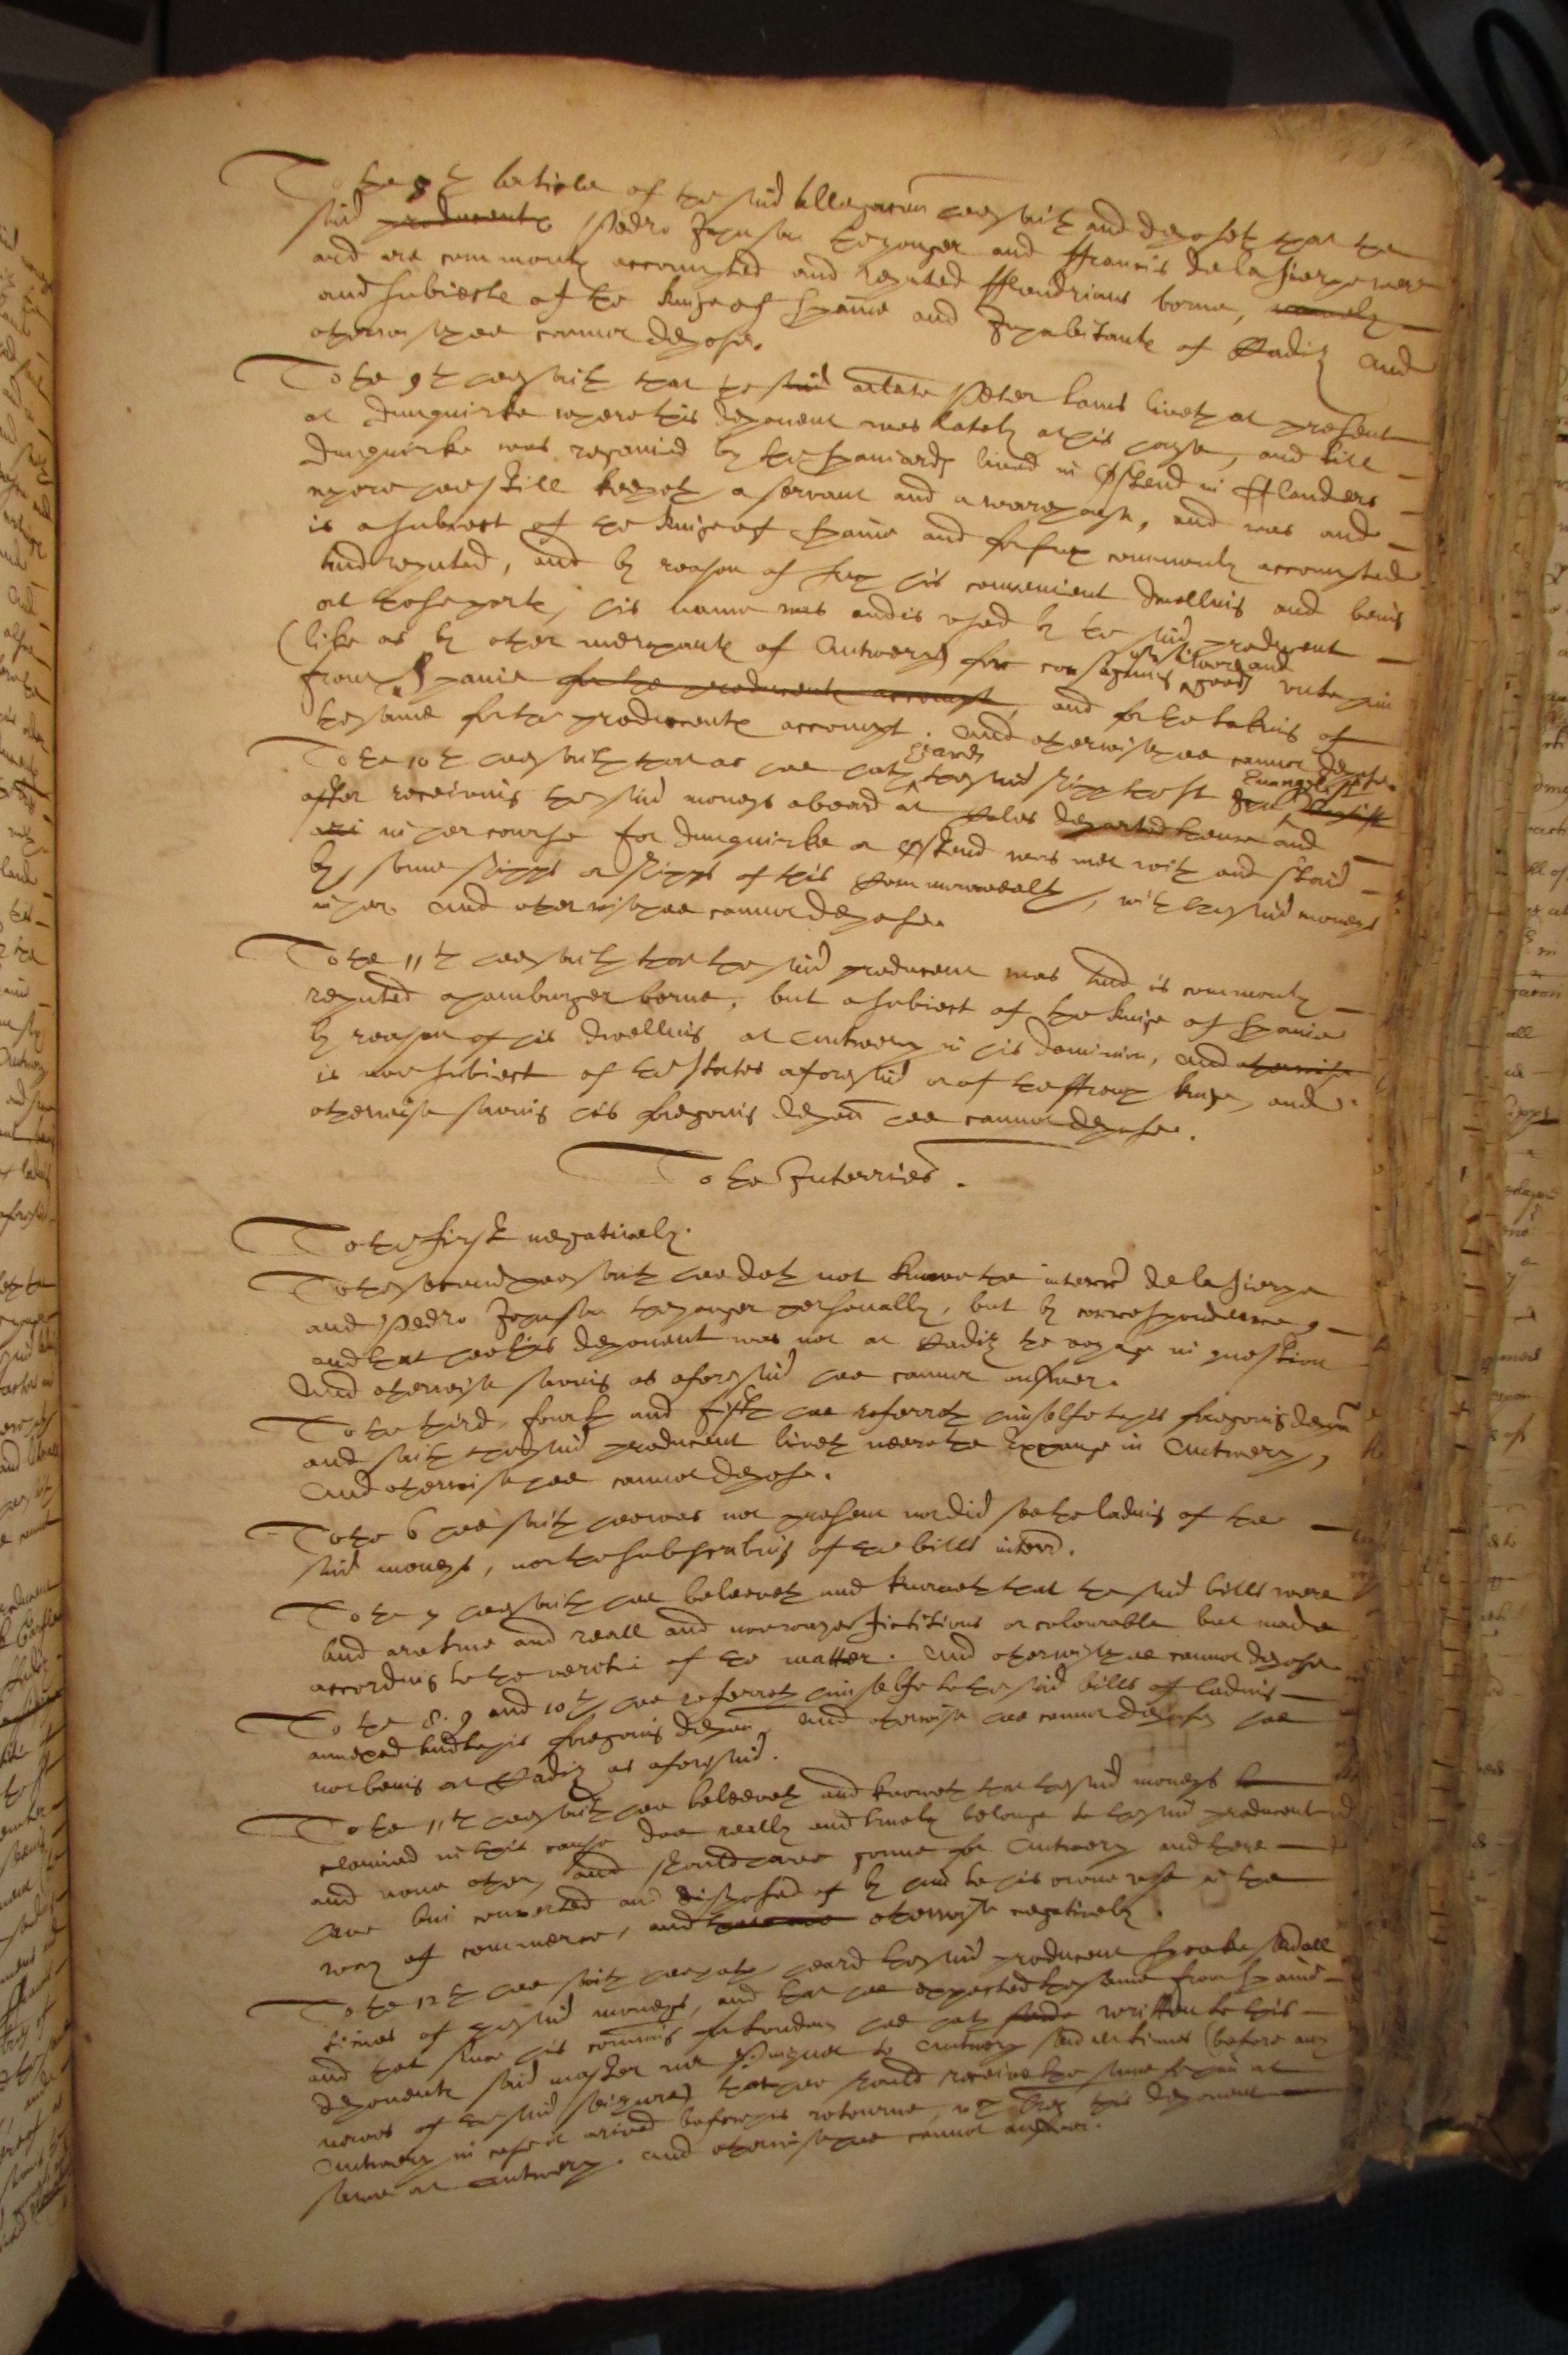 To the 8th Article of the said Allegacon hee saith and deposeth that the
said producents Pedro Johnson the yonger and ffrancis de la Sierpe were
and are commonly accompted and reputed fflendrians borne, namely
and subiects of the kinge of Spaine and Inhabitants of Cadiz And
otherwise hee cannot depose.
To the 9th hee saith that the said arlate Peter Lams liveth at present
at Dunquirke where this deponent was lately at his house, and till
Dunquirke was regained by the Spaniards lived in Ostend in fflanders
where hee still keepeth a servant and a warehouse, and was and
is a subiect of the kinge of Spaine and for such commonly accompted
and reputed, and by reason of such his convenient dwelling and being
at those ports, his name was and is used by the said producent
(like as by other merchants of Antwerp) for consigning silver and goods unto him
from Spaine for the producents accompt, and for the taking of
the same for the producents accompt. And otherwise cannot depose.
To the 10th hee saith that as hee hath heard the said shipp the St John Evangelist Baptist
after receiving the said moneys aboard at Cales departed thence and
in her course for Dunquirke or Ostend was met with and staid
by some shipps or shipps of this Commonwealth, with the said moneys
in her. And otherwise hee cannot depose.
To the 11th hee saith that the said producent was and is commonly
reputed a hamburger borne, but a subiect of the kinge of Spaine
by reason of his dwelling at Antwerp in his dominion, and otherwise
is noe subiect of the States aforesaid or of the ffrench kinge, and
otherwise saving his foregoing depon hee cannot depose.
To the Interries.
To the first negatively.
To the second hee saith hee doth not knowe the interr d de la Sierpe
and Pedro Johnson the yonger personally, but by correspondence,
and that hee this deponent was not at Cadiz the voyage in question
And otherwise saving as aforesaid hee cannot answer.
To the third, fourth and fifth hee referreth himselfe to his foregoing depon
and saith the said producent liveth neere the Exchange in Antwerp,
And otherwise hee cannot depose.
To the 6 hee saith hee was not present nor did see the lading of the
said moneys, nor the subscribing of the bills interrd.
To the 7 hee saith hee beleeveth and knoweth that the said bills were
and are true and reall and noe wayes fictitious or colourable but made
according to the veritie of the matter. And otherwise hee cannot depose
To the 8. 9 and 10th hee referreth himselfe to the said bills of lading
annexed and to his foregoing depon, and otherwise hee cannot depose, hee
not being at Cadiz as aforesaid.
To the 11th hee saith hee beleeveth and knoweth that the said moneys
claimed in this cause doe really and truely belonge to the said producent
and none other, and should have gonne for Antwerp and there
have bin converted and disposed of by him to his owne use in the
way of commerce, and otherwise negatively.
To the 12th hee saith hee hath heard the said producent speake severall
times of the said moneys, and that hee expected the same from Spaine
and that since his coming for London hee hath written to this
deponents said master to Antwerp severall times (before any
newes of the said seizure) that hee should receive the same for him at
Antwerp in case it arived before his retourne, this deponent
at Antwerp. And otherwise hee cannot answer.